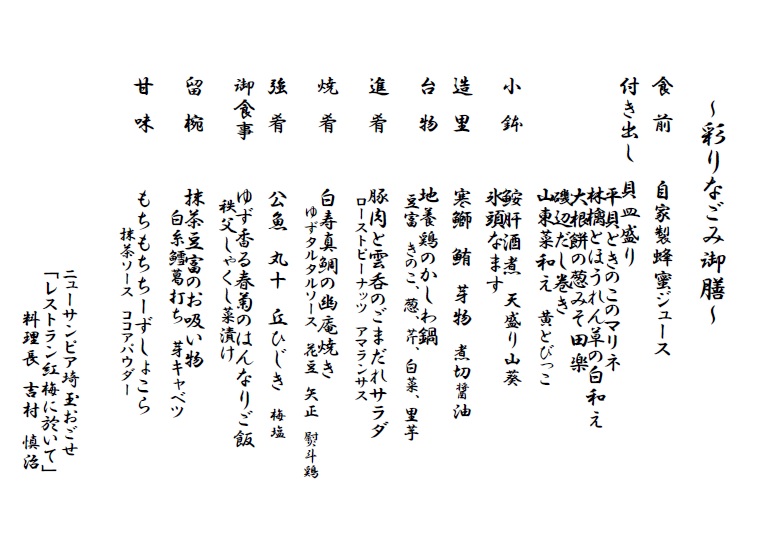 ～彩りなごみ御膳～
食前　自家製蜂蜜ジュース
付き出し　貝皿盛り
平貝ときのこのマリネ
林檎とほうれん草の白和え
大根餅の葱みそ田楽
磯辺だし巻き
山東菜和え　黄とびっこ
小鉢　鮟肝酒煮　天盛り山葵
氷頭なます
造里　寒鰤　鮪　芽物　煮切醤油
台物　地養鶏のかしわ鍋
豆富　きのこ、葱、芹、白菜、里芋
進肴　豚肉と雲呑のごまだれサラダ
ローストピーナッツ　アマランサス
焼肴　白寿真鯛の幽庵焼き
ゆずタルタルソース　花豆　矢正　熨斗鶏
強肴　公魚　丸十　丘ひじき　梅塩
御食事　ゆず香る春菊のはんなりご飯
秩父しゃくし菜漬け
留椀　抹茶豆富のお吸い物
白糸鱈葛打ち　芽キャベツ
甘味　もちもちちーずしょこら
抹茶ソース　ココアパウダー
ニューサンピア埼玉おごせ
「レストラン紅梅に於いて」
料理長　吉村　慎治